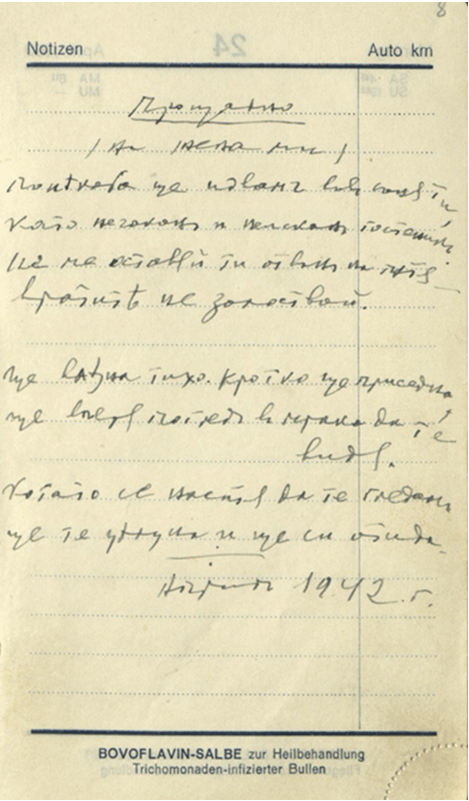 8
Notizen Auto km
Прощално
/на жена ми/
Понякога ще идвам във съня ти
като нечакан и неискан гостенин
Не ме оставяй ти отвън на пътя
вратите не залоствай.
Ще влезна тихо. Кротко ще приседна
ще вперя поглед в мрака да те
видя.
Когато се наситя да те гледам
ще те целуна и ще си отида.
1942 г.
BOVOFLAVIN-SALBE zur Heilbehandlung
Trichomonaden-infizierter Bullen